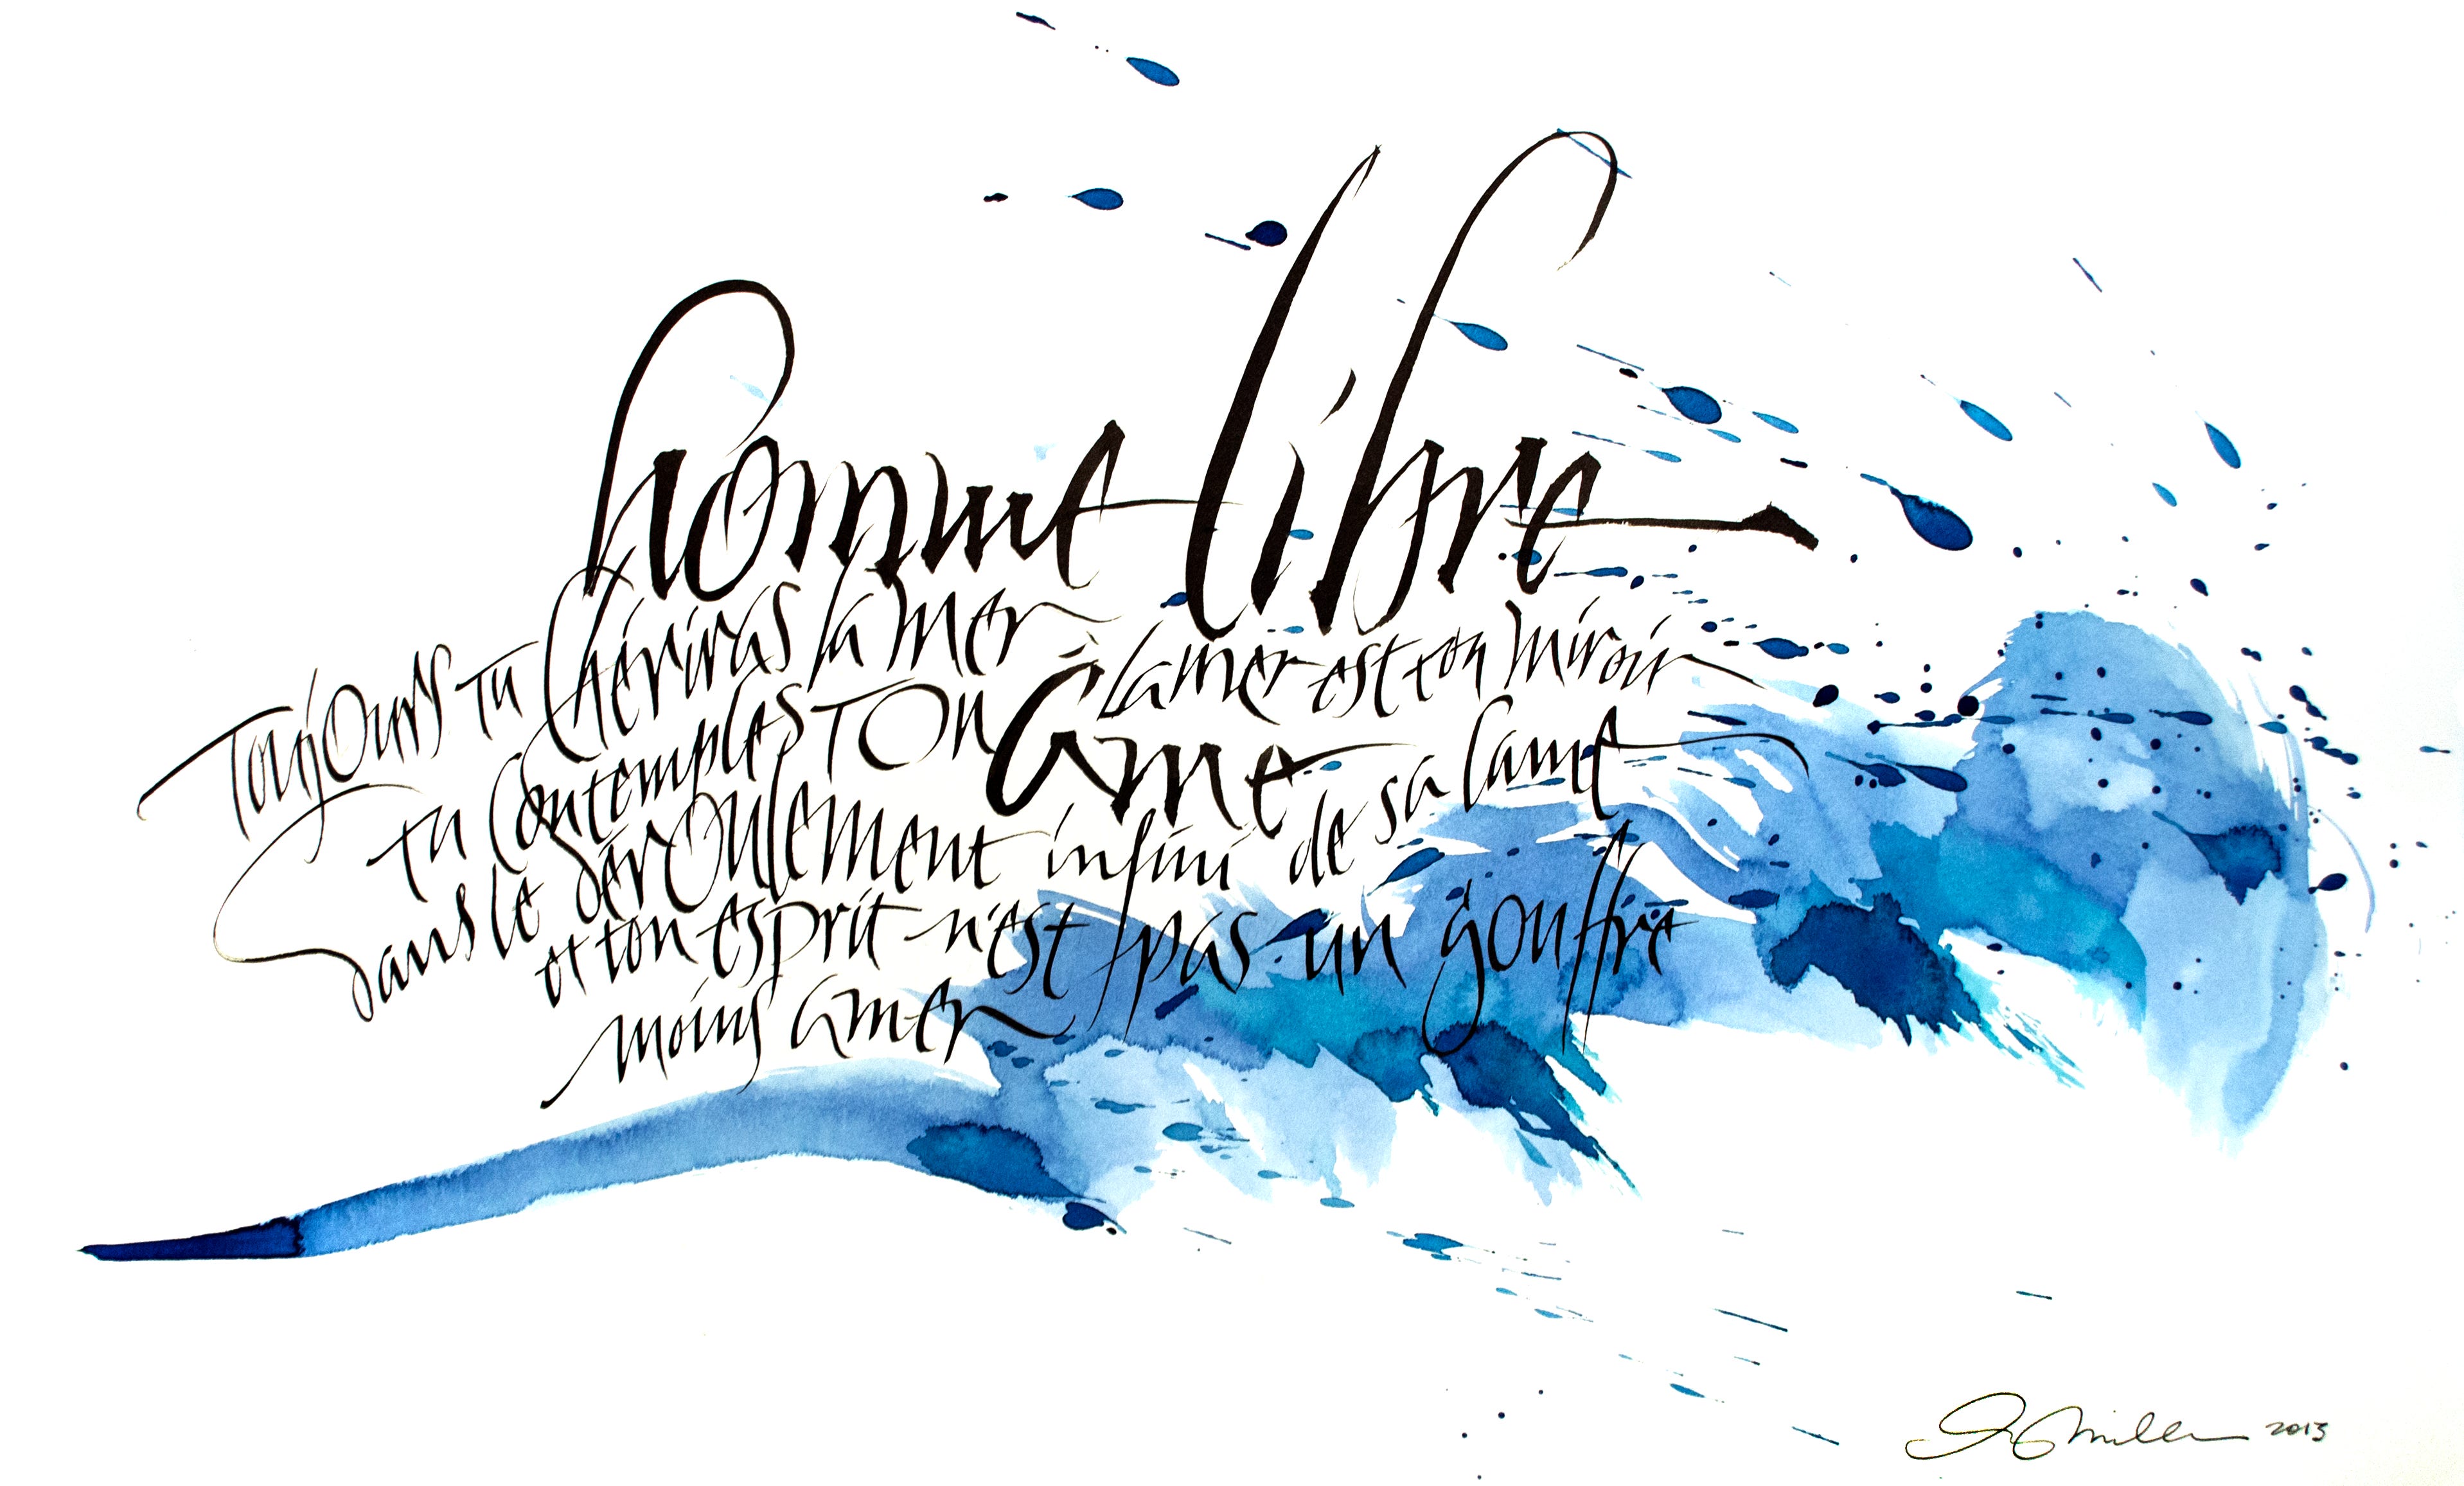 homme libre
Toujours tu chériras la mer la mer est ton miroir
tu contemples ton âme
dans le déroulement infini de sa lame
et ton esprit n'est pas un gouffre
moins amer
2013